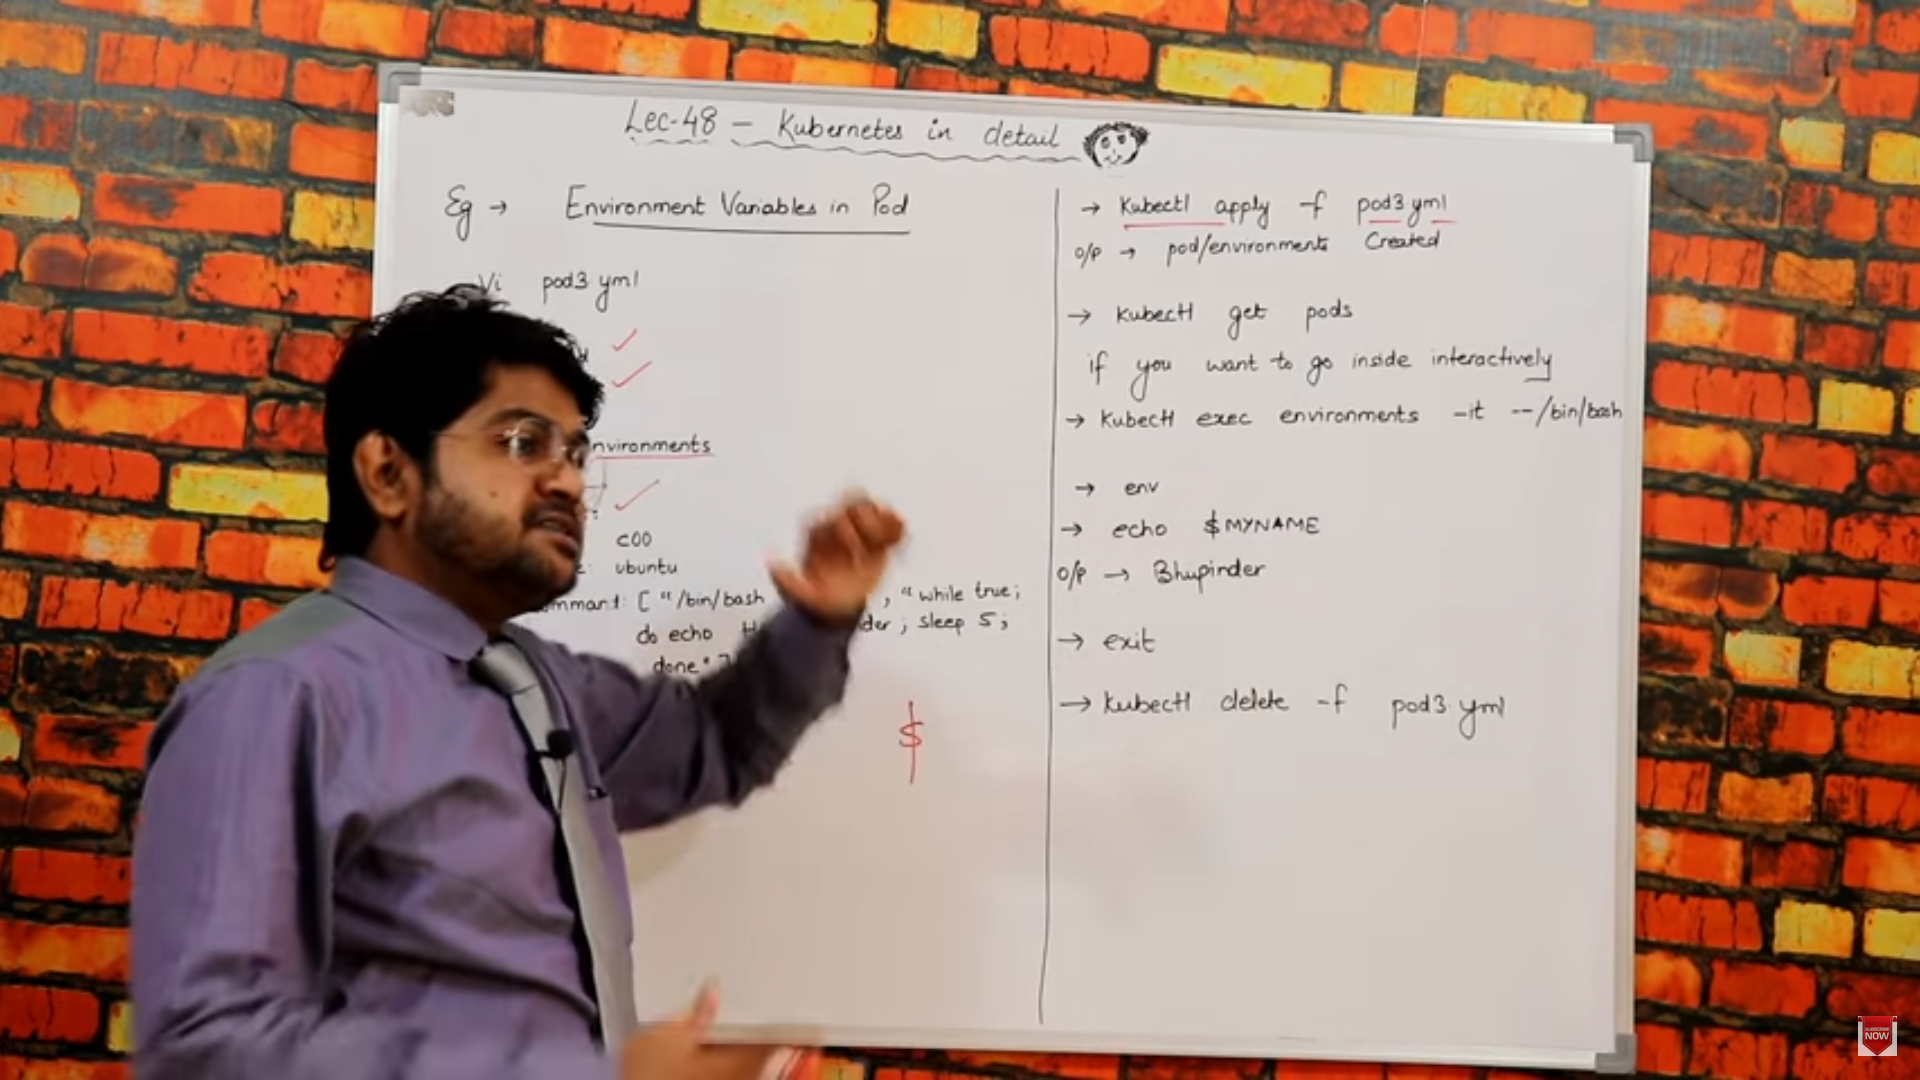 Lec-48 – Kubernetes in detail
Eg → Environment Variables in Pod
Vi pod3.yml
nvironments
C00
ubuntu
command: ["/bin/bash , "while true;
do echo ; sleep 5;
done"]
$
→ Kubectl apply -f pod3.yml
o/p → pod/environments Created
→ Kubectl get pods
if you want to go inside interactively
→ Kubectl exec environments -it --/bin/bash
→ env
→ echo $MYNAME
o/p → Bhupinder
→ exit
→ Kubectl delete -f pod3.yml
SUBSCRIBE
NOW